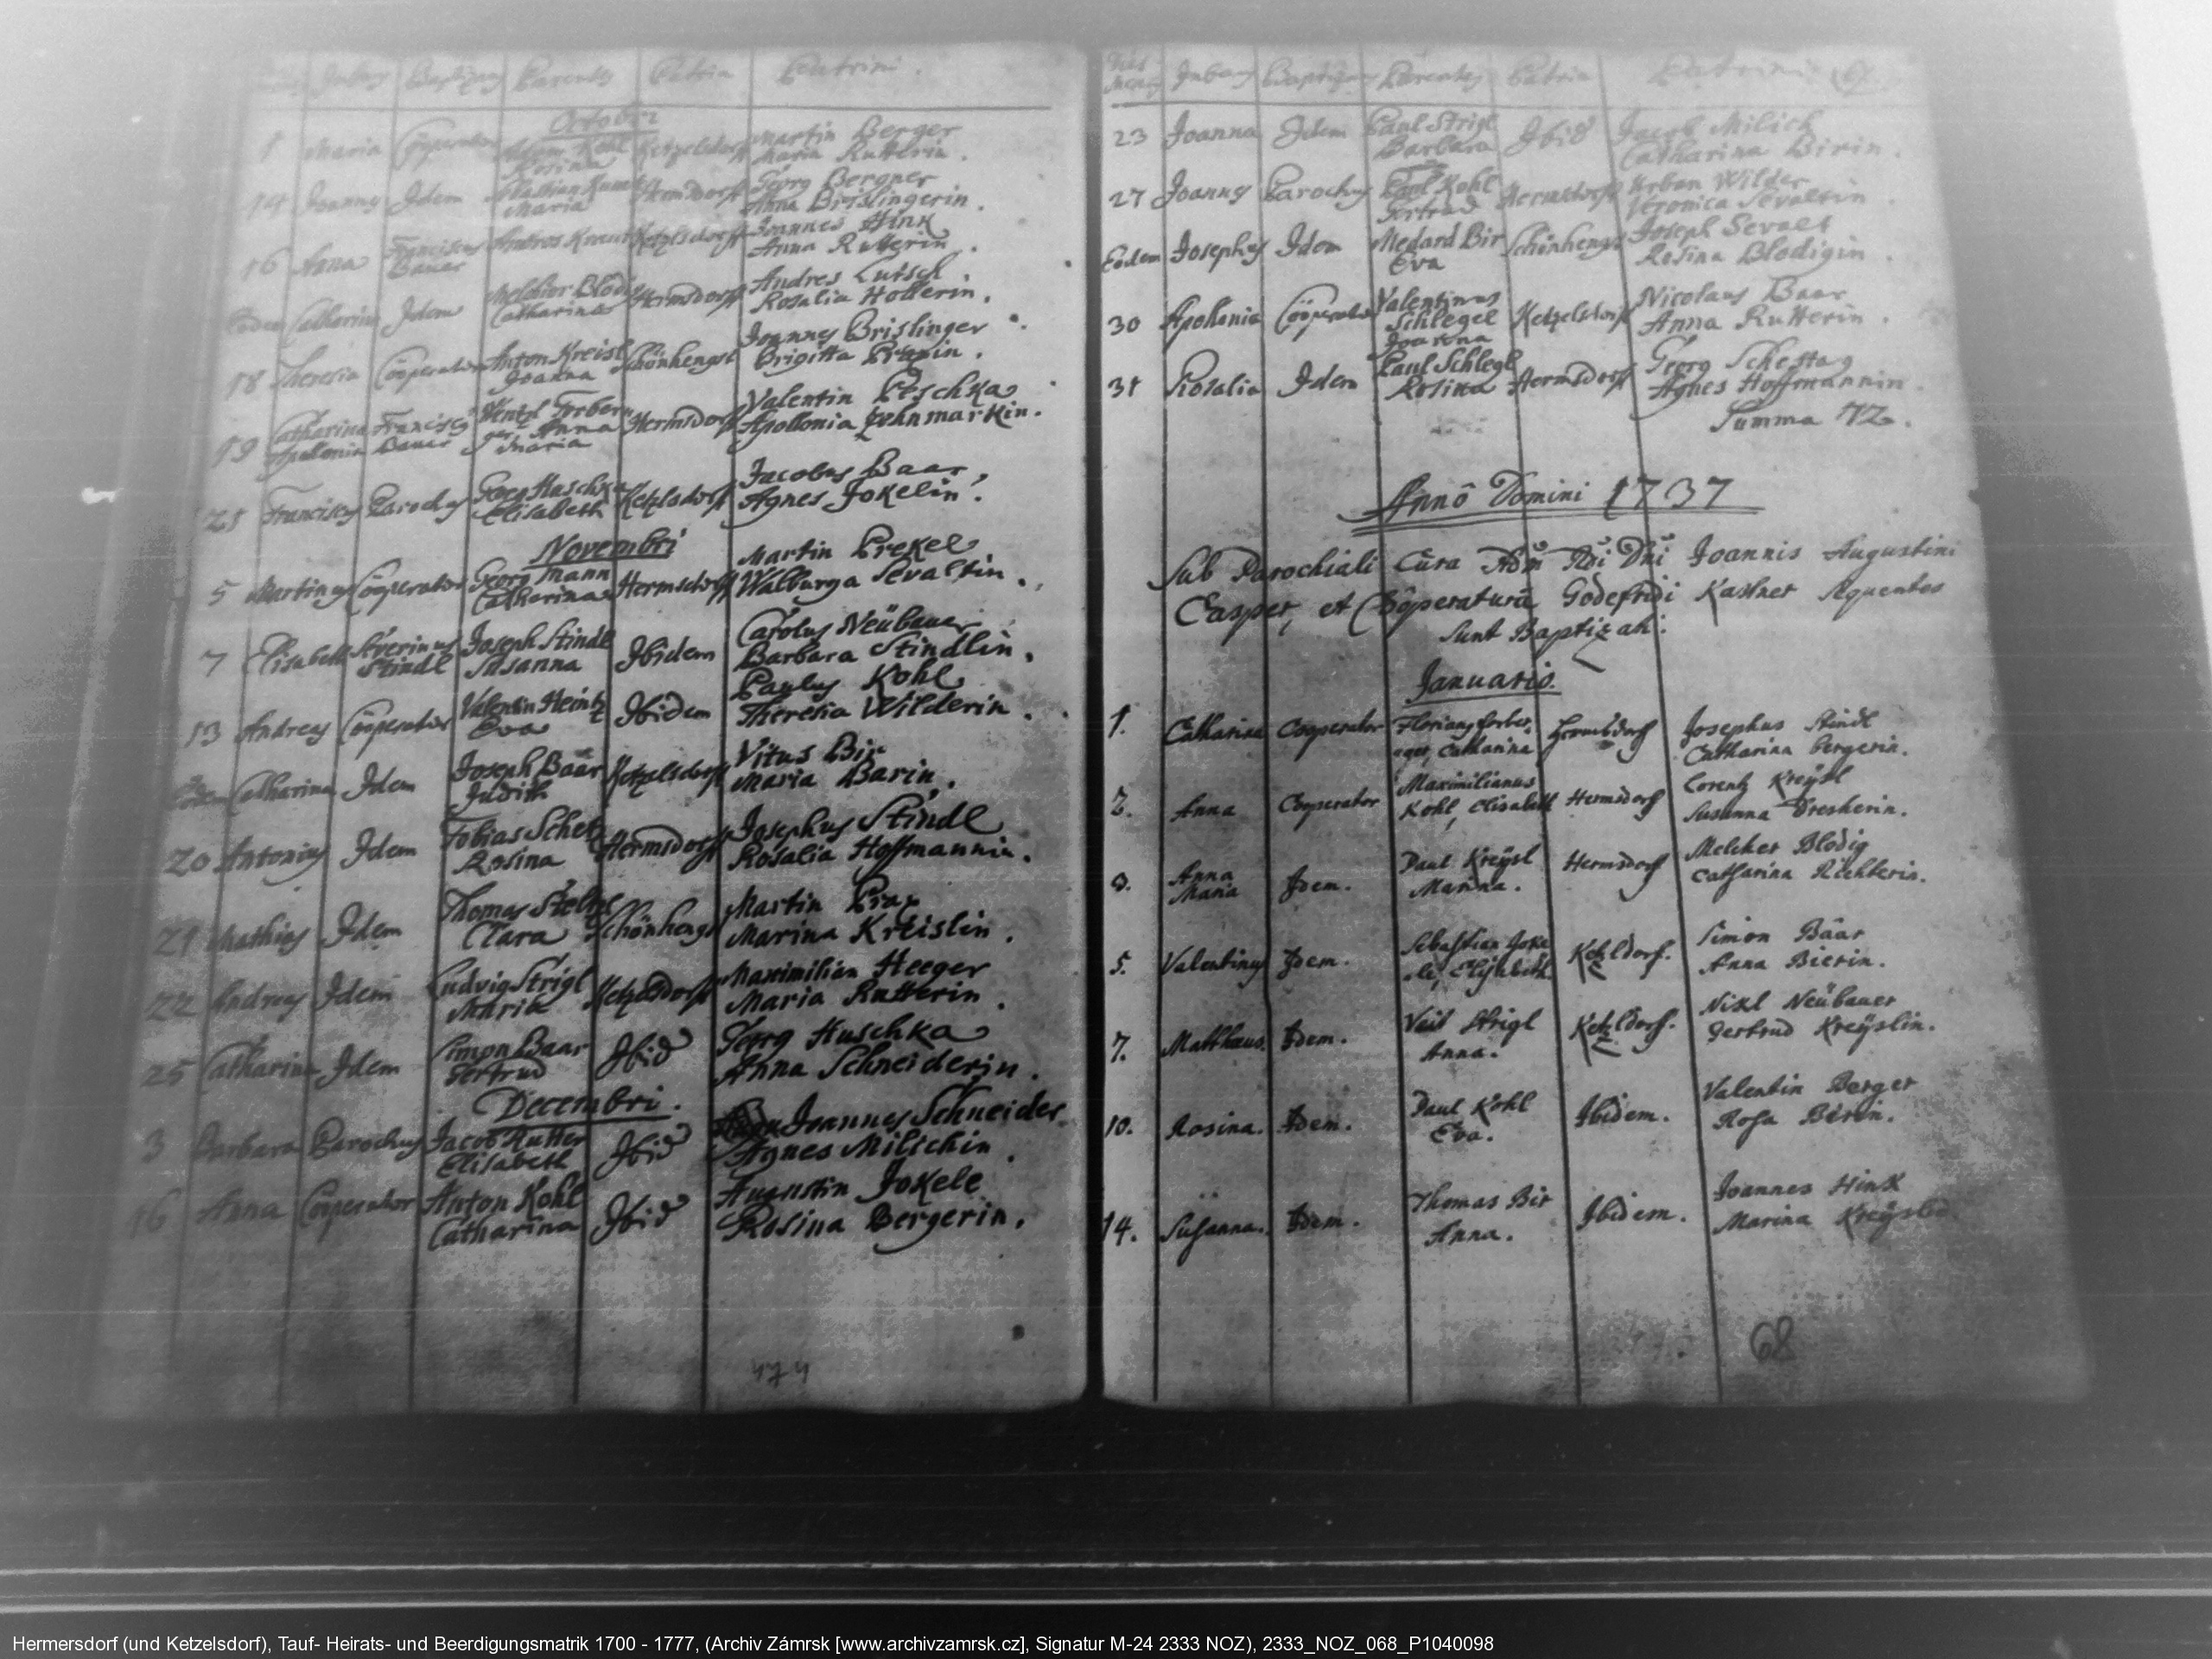 Infans Baptizans Parentes Patria Patrini
Octobri
1 Maria Cöoperator Adam Kohl Rosina Ketzelsdorff Martin Berger
Maria Rutterin.
14 Joannes Idem Mathias Maria Hermsdorff Georg Bergner
Anna Brislingerin.
16 Anna Franciscus Bauer Andreas Ketzlsdorff Joannes Hink
Anna Rutterin.
Eodem Catharina Idem Melchior Blodig Catharina Hermsdorff Andres Lutsch.
Rosalia Hollerin.
18 Theresia Cöoperator Anton Kreisl Joanna Schönhengst Joannes Brislinger
Brigitta Praxin.
19 Catharina Apollonia Franciscus Bauer Wentzl Forberger Anna Maria Hermsdorff Valentin Peschka
Apollonia Zohnmarkin.
21 Franciscus Parochus Georg Haschka Elisabeth Ketzlsdorff Jacobus Baar
Agnes Jokelin.
Novembri
5 Martinus Cöoperator Georg Mann Catharina Hermsdorff Martin Prekel
Walburga Sevaltin.
7 Elisabeth Severinus Stindl Joseph Stindl Susanna Ibidem Carolus Neübauer
Barbara Stindlin.
13 Andreas Cöoperator Valentin Heintz Eva Ibidem Paulus Kohl
Theresia Wilderin.
Eodem Catharina Idem Joseph Baar Judith Ketzelsdorff Vitus Bir
Maria Barin.
20 Antonius Idem Tobias Schetz Rosina Hermsdorff Josephus Stindl
Rosalia Hoffmannin.
21 Mathias Idem Thomas Clara Schönhengst Martin Prax
Marina Kreislin.
22 Andreas Idem Ludvig Strigl Maria Ketzelsdorff Maximilian Heeger
Maria Rutterin.
25 Catharina Idem Simon Baar Gertrud Ibid Georg Huschka
Anna Schneiderin.
Decembri.
3 Barbara Parochus Jacob Rutter Elisabeth Ibid Joannes Schneider
Agnes Miltchin.
16 Anna Cöoperator Anton Kohl Catharina Ibid Augustin Jokele
Rosina Bergerin.
474
Dies Mensis Infans Baptizans Parentes Patria Patrini
23 Joanna Idem Paul Strigl Barbara Ibid Jacob Milich
Catharina Birin.
27 Joannes Parochus Paul Kohl Gertrud Hermsdorff Urban Wilder
Veronica Sevaltin
Eodem Josephus Idem Medard Bir Eva Schönhengst Joseph Sevalt
Rosina Blodigin
30 Apolonia Cöoperator Valentinus Schlegel Joanna Ketzelsdorff Nicolaus Baar
Anna Rutterin.
31 Rosalia Idem Paul Schlegl Rosina Hermsdorff Georg Schestag
Agnes Hoffmannin.
Summa 72.
Annô Domini 1737
Sub Parochiali Cura Adm Rdi Dni Joannis Augustini
Casper, et Cöoperaturâ Godefridi Kastner Sequentes
sunt Baptizati.
Januario.
1. Catharina Cooperator Florianus Forberager, Catharina Hermbsdorf Josephus Stindl
Catharina bergerin.
2. Anna Cooperator Maximilianus Kohl, Elisabeth Hermsdorf Lorentz Kreÿsl
Susanna Dresherin.
3. Anna Maria Idem. Paul Kreÿsl Marina. Hermsdorf Melcher Blodig
Catharina Richterin.
5. Valentinus Idem. Sebastian Jokele, Elisabeth Ketzldorf. Simon Bäar
Anna Bierin.
7. Matthæus. Idem. Veit Strigl Anna. Ketzldorf. Nikl Neübauer
Gertrud Kreÿslin.
10. Rosina. Idem. Paul Kohl Eva. Ibidem. Valentin Berger
Rosa
14. Susanna. Idem. Thomas Bir Anna. Ibidem. Joannes Hink
Marina
68
Hermersdorf (und Ketzelsdorf), Tauf- Heirats- und Beerdigungsmatrik 1700 - 1777, (Archiv Zámrsk [www.archivzamrsk.cz], Signatur M-24 2333 NOZ), 2333_NOZ_068_P1040098